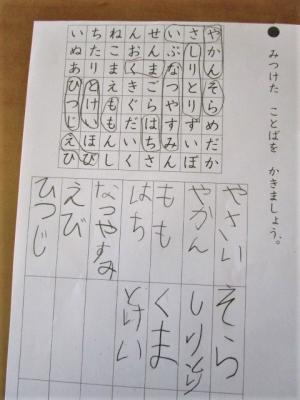 みつけた ことばを かきましょう。
やかんそらめだか
さしりとりずいぼ
いぶなつやすみん
せんまごらはちさ
んおくきぐだいく
ねこまえももんし
ちたりとけいほび
いぬあひつじえび
やさい
そら
やかん
しりとり
もも
くま
はち
とけい
なつやすみ
えび
ひつじ